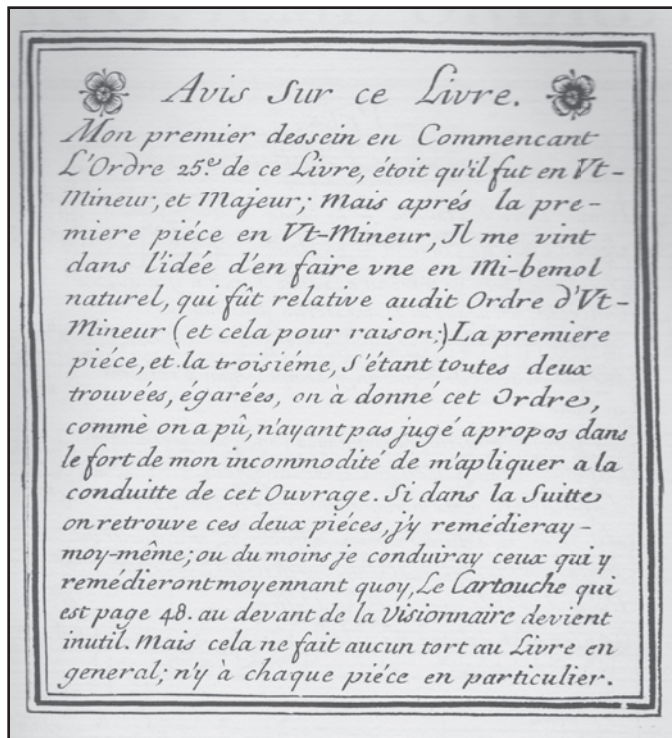 Avis Sur ce Livre.
Mon premier dessein en Commencant
L'Ordre 25.e de ce Livre, étoit qu'il fut en Vt-
Mineur, et Majeur; Mais aprés la pre-
miere piéce en Vt-Mineur, Jl me vint
dans l'idée d'en faire vne en Mi-bemol
naturel, qui fût relative audit Ordre d'Vt-
Mineur (et cela pour raison:) La premiere
piéce, et la troisiéme, s'étant toutes deux
trouvées, égarées, on à donné cet Ordre,
commè on a pû, n'ayant pas jugé apropos dans
le fort de mon incommodité de m'apliquer a la
conduitte de cet Ouvrage. Si dans la Suitte
on retrouve ces deux piéces, j'y remédieray-
moy-même; ou du moins je conduiray ceux qui y
remédieront moyennant quoy, Le Cartouche qui
est page 48. au devant de la Visionnaire devient
inutil. Mais cela ne fait aucun tort au Livre en
general; n'y à chaque piéce en particulier.